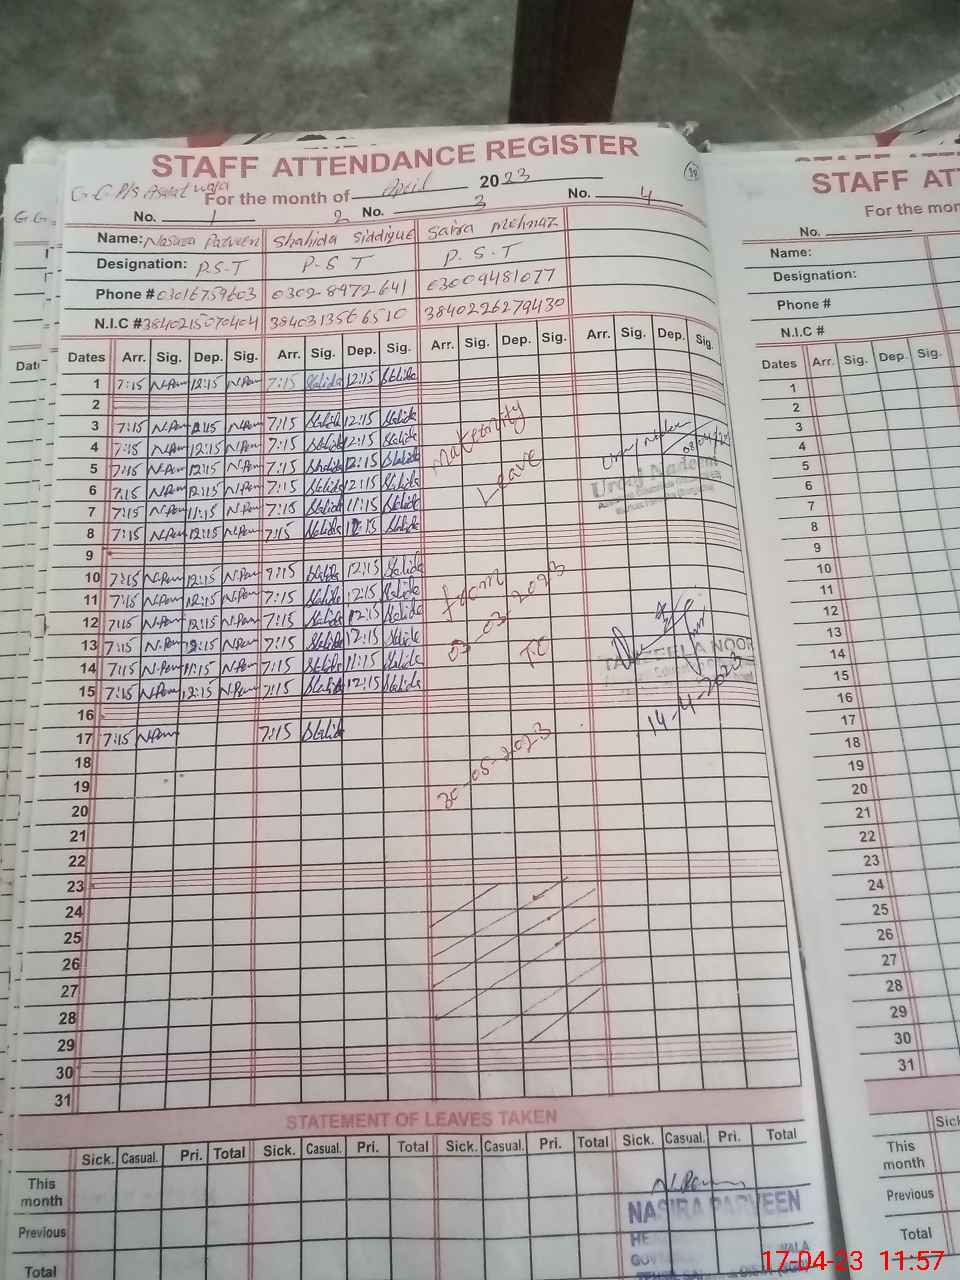 STAFF ATTENDANCE REGISTER
For the month of April 2023
No. 1 2 No. 3 No. 4
Name: Nasira Parveen Shahida Siddique Saira Mehnaz
Designation: P.S.T P.S.T P.S.T
Phone # 03016759603 0302-8972641 03009481077
N.I.C # 3840226279430
Dates Arr. Sig. Dep. Sig. Arr. Sig. Dep. Sig. Arr. Sig. Dep. Sig. Arr. Sig. Dep. Sig.
1 7:15 N.Par 12:15 N.Par 7:15 Shahida 12:15 Shahida
2
3 7:15 N.Par 12:15 N.Par 7:15 Shahida 12:15 Shahida
4 7:15 N.Par 12:15 N.Par 7:15 Shahida 12:15 Shahida
5 7:15 N.Par 12:15 N.Par 7:15 Shahida 12:15 Shahida
6 7:15 N.Par 12:15 N.Par 7:15 Shahida 12:15 Shahida
7 7:15 N.Par 11:15 N.Par 7:15 Shahida 11:15 Shahida
8 7:15 N.Par 12:15 N.Par 7:15 Shahida 12:15 Shahida
9
10 7:15 N.Par 12:15 N.Par 7:15 Shahida 12:15 Shahida
11 7:15 N.Par 12:15 N.Par 7:15 Shahida 12:15 Shahida
12 7:15 N.Par 12:15 N.Par 7:15 Shahida 12:15 Shahida
13 7:15 N.Par 12:15 N.Par 7:15 Shahida 12:15 Shahida
14 7:15 N.Par 11:15 N.Par 7:15 Shahida 11:15 Shahida
15 7:15 N.Par 12:15 N.Par 7:15 Shahida 12:15 Shahida
16
17 7:15 N.Par 7:15 Shahida
18
19
20
21
22
23
24
25
26
27
28
29
30
31
Maternity
Leave
from
03-2023
To
-05-2023
14-4-2023
STATEMENT OF LEAVES TAKEN
Sick. Casual. Pri. Total Sick. Casual. Pri. Total Sick. Casual. Pri. Total Sick. Casual. Pri. Total
This month
Previous
Total
NASIRA PARVEEN
STAFF
For the
No.
Name:
Designation:
Phone #
N.I.C #
Dates Arr. Sig. Dep. Sig.
1
2
3
4
5
6
7
8
9
10
11
12
13
14
15
16
17
18
19
20
21
22
23
24
25
26
27
28
29
30
31
This month
Previous
Total
17-04-23 11:57